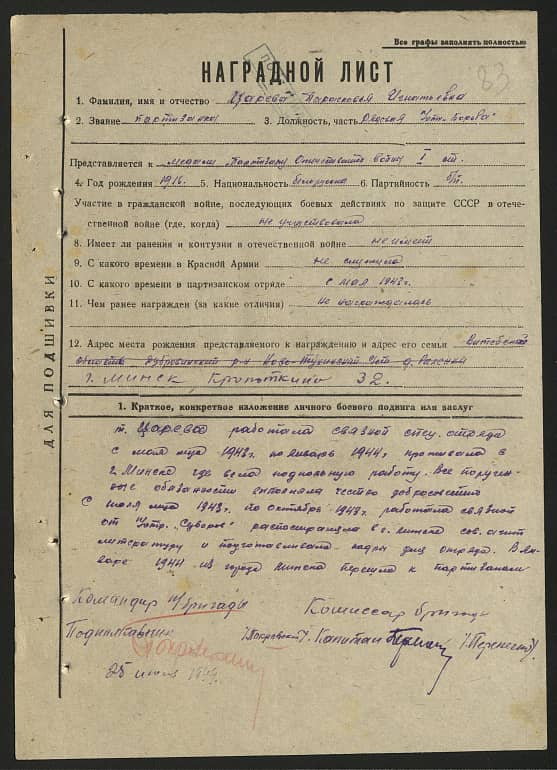 Все графы заполнять полностью
83
НАГРАДНОЙ ЛИСТ
1. Фамилия, имя и отчество Царева Парасковья Игнатьевна
2. Звание партизанка 3. Должность, часть
Представляется к медали Партизану Отечественной войны I ст.
4. Год рождения 1916. 5. Национальность белоруска 6. Партийность б/п.
Участие в гражданской войне, последующих боевых действиях по защите СССР в отече-
ственной войне (где, когда) не участвовала
8. Имеет ли ранения и контузии в отечественной войне не имеет
9. С какого времени в Красной Армии не служила
10. С какого времени в партизанском отряде с мая 1943г.
11. Чем ранее награжден (за какие отличия) не награждалась
12. Адрес места рождения представляемого к награждению и адрес его семьи Витебская
область Дубровинский р-н
г. Минск Кропоткина 32.
1. Краткое, конкретное изложение личного боевого подвига или заслуг
т. Царева работала связной спец. отряда
с мая м-ца 1943г. по январь 1944г. проживала в
г. Минске где вела подпольную работу. Все поручен-
ные обязанности выполняла честно добросовестно
С июля м-ца 1943г. по октябрь 1943г. работала связной
от "Суворов" распространяла в г. Минске сов. агит
литературу и подготавливала кадры для отряда. В ян-
варе 1944г. из города Минска перешла к партизанам
Командир п/бригады Комиссар бригады
Подполковник /Покровский/. Капитан
25 1944.
ДЛЯ ПОДШИВКИ